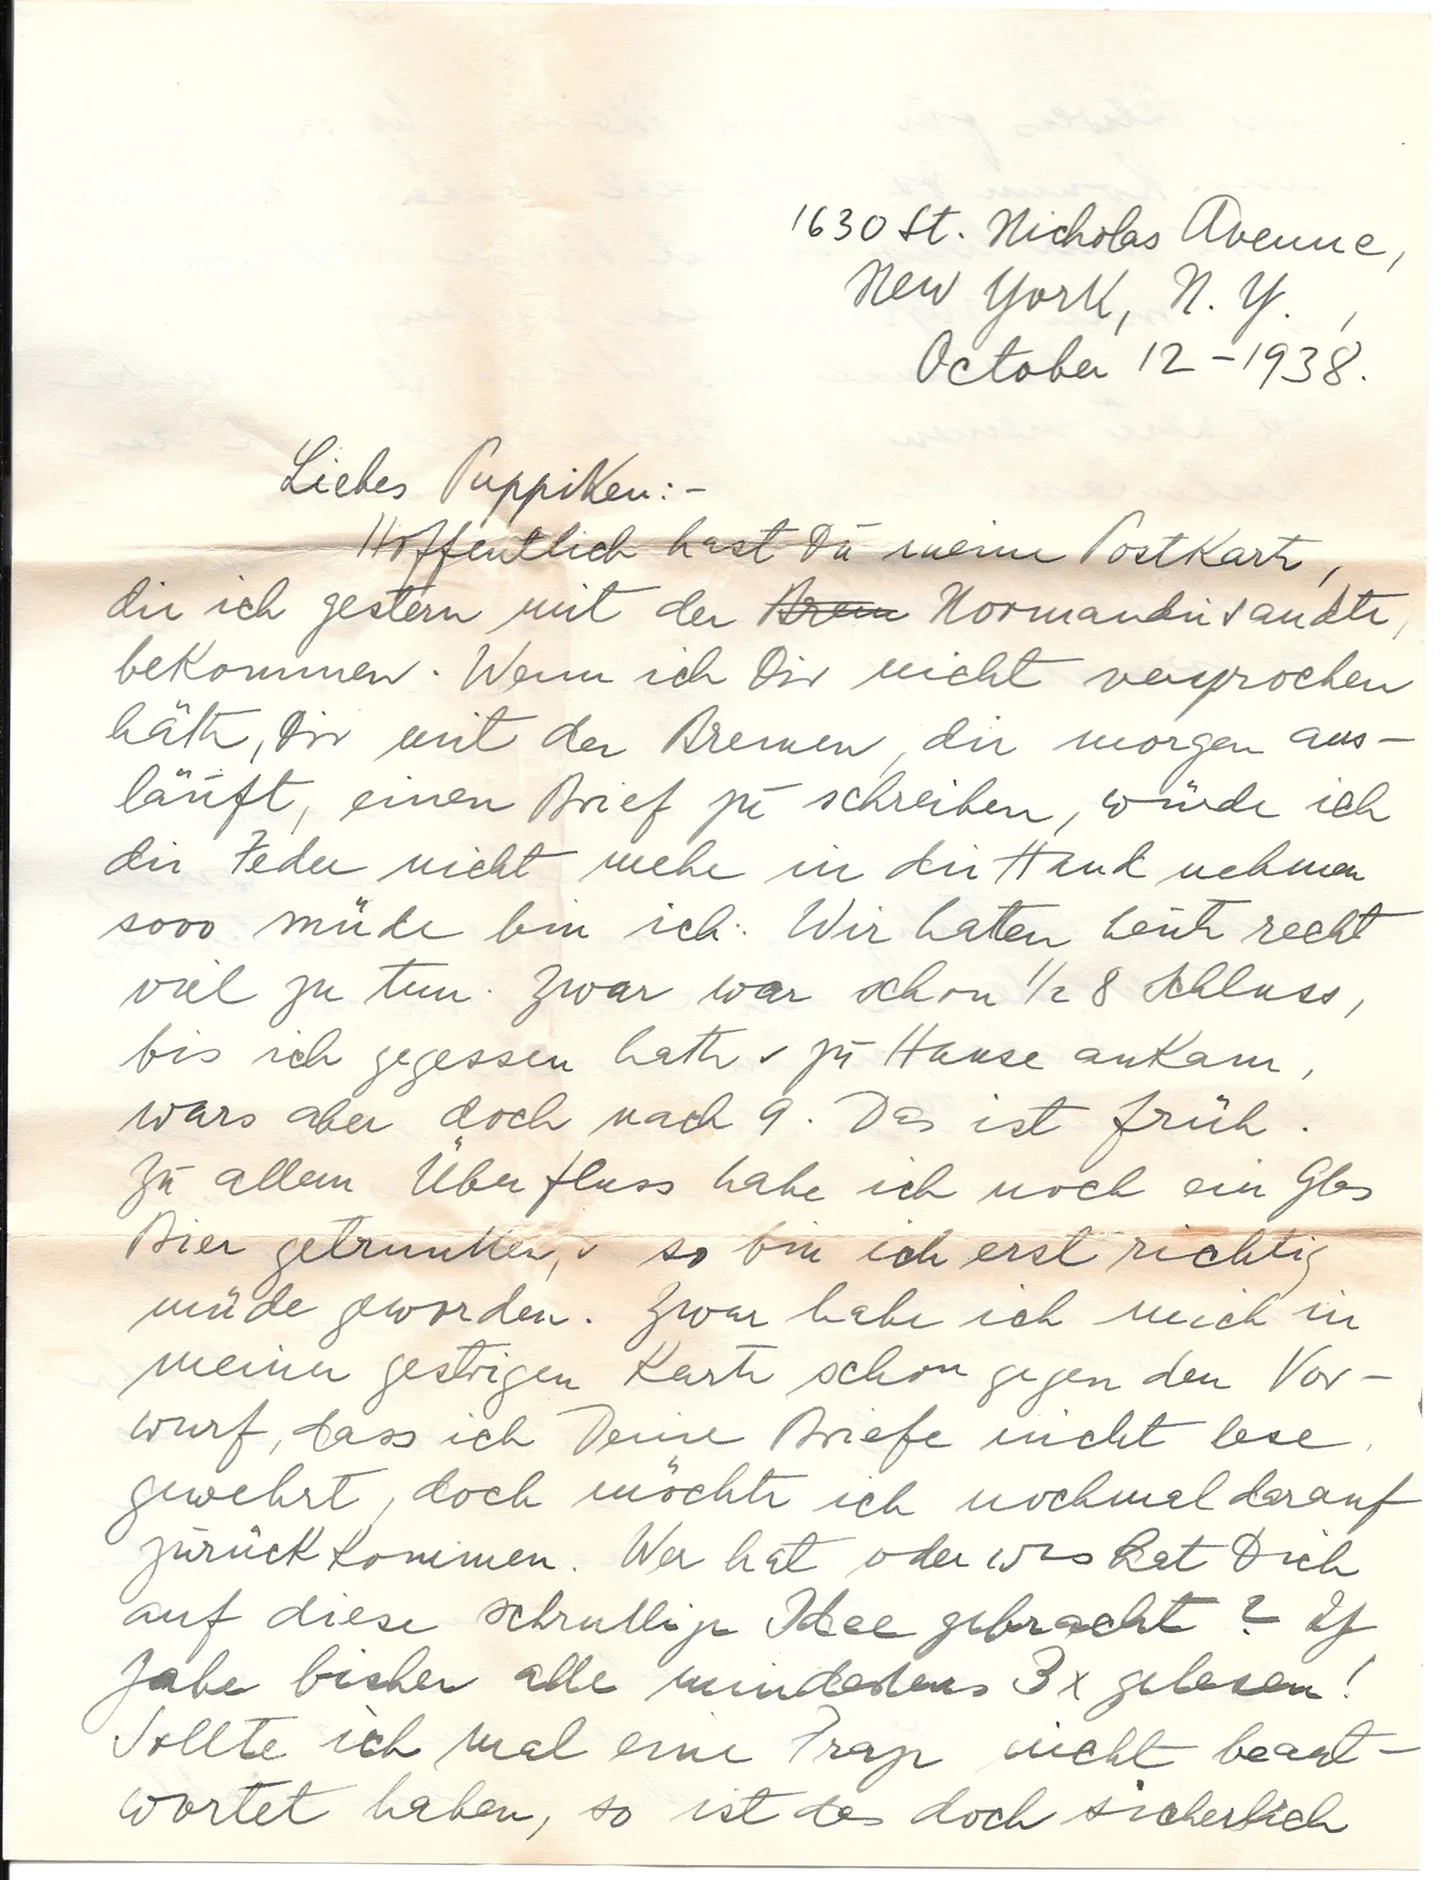 1630 St. Nicholas Avenue,
New York, N. Y.,
October 12 – 1938.
Liebes Puppiken: –
Hoffentlich hast Du meine Postkarte,
die ich gestern mit der Brem Normandie sandte,
bekommen. Wenn ich Dir nicht versprochen
hätte, Dir mit der Bremen, die morgen aus-
läuft, einen Brief zu schreiben, würde ich
die Feder nicht mehr in die Hand nehmen
sooo müde bin ich. Wir hatten heute recht
viel zu tun. Zwar war schon 1/2 8 Schluss,
bis ich gegessen hatte & zu Hause ankam,
wars aber doch nach 9. Das ist früh.
Zu allem Überfluss habe ich noch ein Glas
Bier getrunken, & so bin ich erst richtig
müde geworden. Zwar habe ich mich in
meiner gestrigen Karte schon gegen den Vor-
wurf, dass ich Deine Briefe nicht lese,
gewehrt, doch möchte ich nochmal darauf
zurückkommen. Wer hat oder was hat Dich
auf diese schrullige Idee gebracht? Ich
habe bisher alle mindestens 3x gelesen!
Sollte ich mal eine Frage nicht beant-
wortet haben, so ist das doch sicherlich